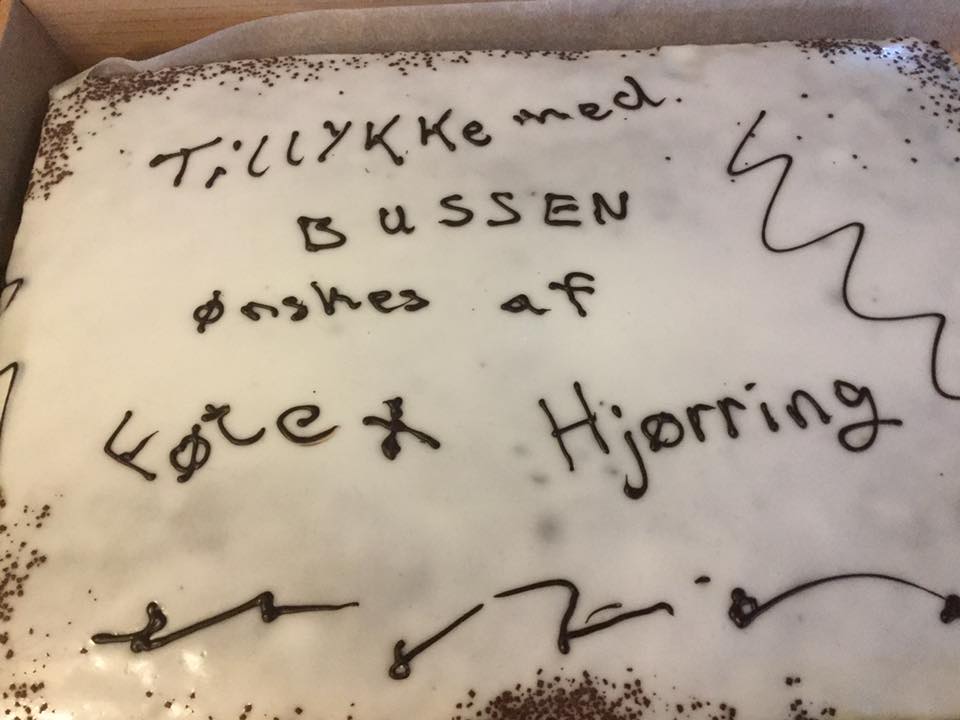 TiLLYKKe med.
BUSSEN
ønskes af
Føtex Hjørring